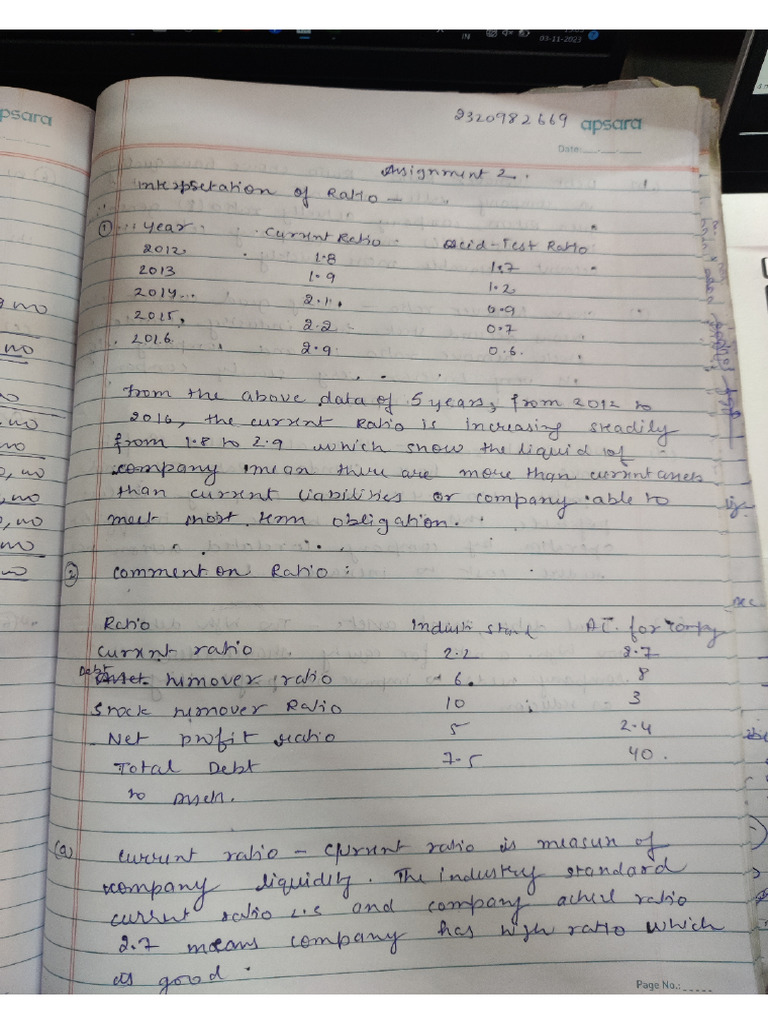 IN
03-11-2023
psara
2320982669 apsara
Date:
Assignment 2.
Interpretation of Ratio -
① Year Current Ratio Acid-Test Ratio
2012 1.8 1.7
2013 1.9 1.2
2014 2.11 0.9
2015 2.2 0.7
2016 2.9 0.6
from the above data of 5 years, from 2012 to
2016, the current Ratio is increasing steadily
from 1.8 to 2.9 which show the liquid of
company mean there are more than current assets
than current liabilities or company able to
meet short term obligation.
② comment on Ratio:
Ratio Industr stand AC. for Compy
current ratio 2.2 2.7
Debt turnover ratio 6. 8
Stock turnover Ratio 10 3
Net profit ratio 5 2.4
Total Debt 7.5 40.
to Asset.
(a) current ratio - current ratio is measur of
company liquidity. The industry standard
current ratio and company actul ratio
2.7 means company has high ratio which
is good.
Page No.: